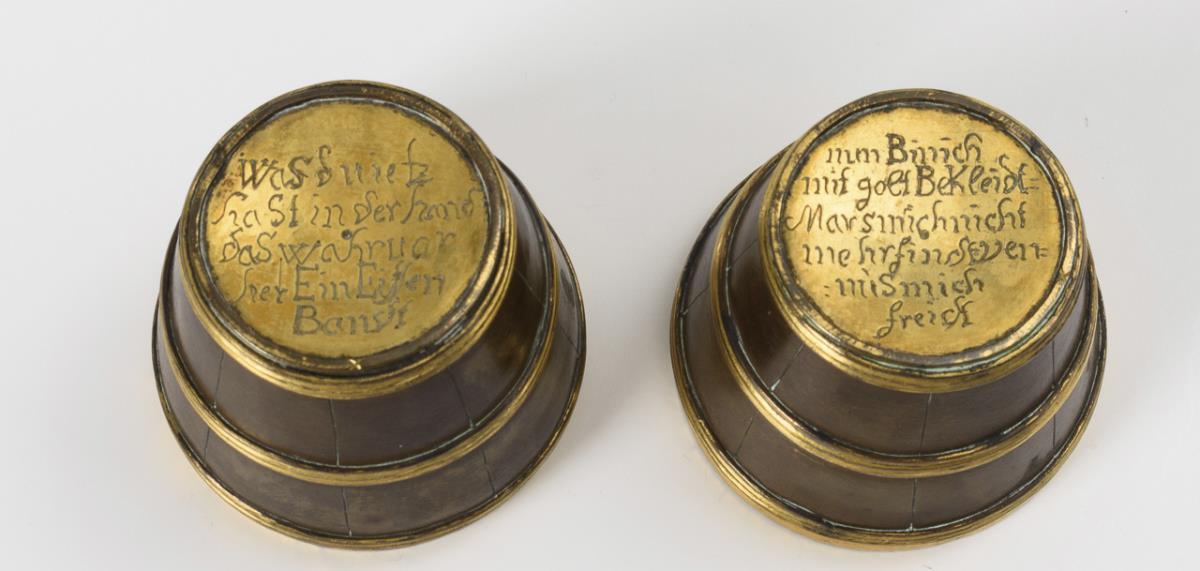 Was du ietz
hast in der hand
das wahr uor
her Ein Eisen
Bandt
nun Bin ich
mit golt BeKleidt=
Mars mich nicht
mehr findt Ven=
:nis mich
freidt